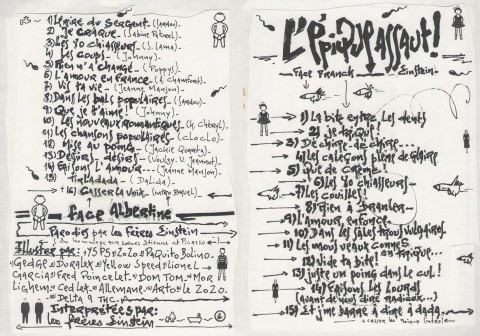 1) L'Empire du Sergent (Sardou)
2) Je craque (Sabine Paturel)
3) Les 80 chasseurs (S. Lama)
4) Les coups (Johnny)
5) Rien n'a changé (Poppys)
6) L'amour en France (Chamfort)
7) Vis ta vie (Jeanne Manson)
8) Dans les bals populaires (Sardou)
9) Que je t'aime! (Johnny)
10) Les nouveaux romantiques (K. Cheryl)
11) Les chansons populaires (cloclo)
12) Mise au point (Jackie Quartz)
13) Désirs, désirs (Voulzy. V. Jeannot)
14) Faisons l'amour... (Jeanne Manson)
15) Dalida)
16) Casser la voix (intro Bruel)
Face Albertine
Parodies par les frères Einstein
en hommage aux soeurs Etienne et Picasso
Illustré par: Y5P5 2020 Paquito Bolino
Gedge Doralex Yellow Speed Lionel
Garcia Fred Poincelet Dom Tom Mor
Lighem Ced Lekes Allemane Arto Le 2020
Delta 9 THC
Interprétées par:
les frères Einstein
L'épique assaut!
Face Franck Einstein
1) La bite entre les dents
2) Je trique!
3) De chaire de chaire...
4) Les caleçons pleins de glaire
5) Que de crème!
6) Les 80 chiasseurs
7) Les couilles!
8) Rien à branler
9) L'amour enfonce
10) Dans les sales trous vulgaires
11) Les mous veaux connes
en trique...
12) Vide ta bite!
13) Juste un poing dans le cul!
14) Faisons les lourds
(avant de nous dire radieux...)
15) Et j'me barre à dire à dada
+ casser la